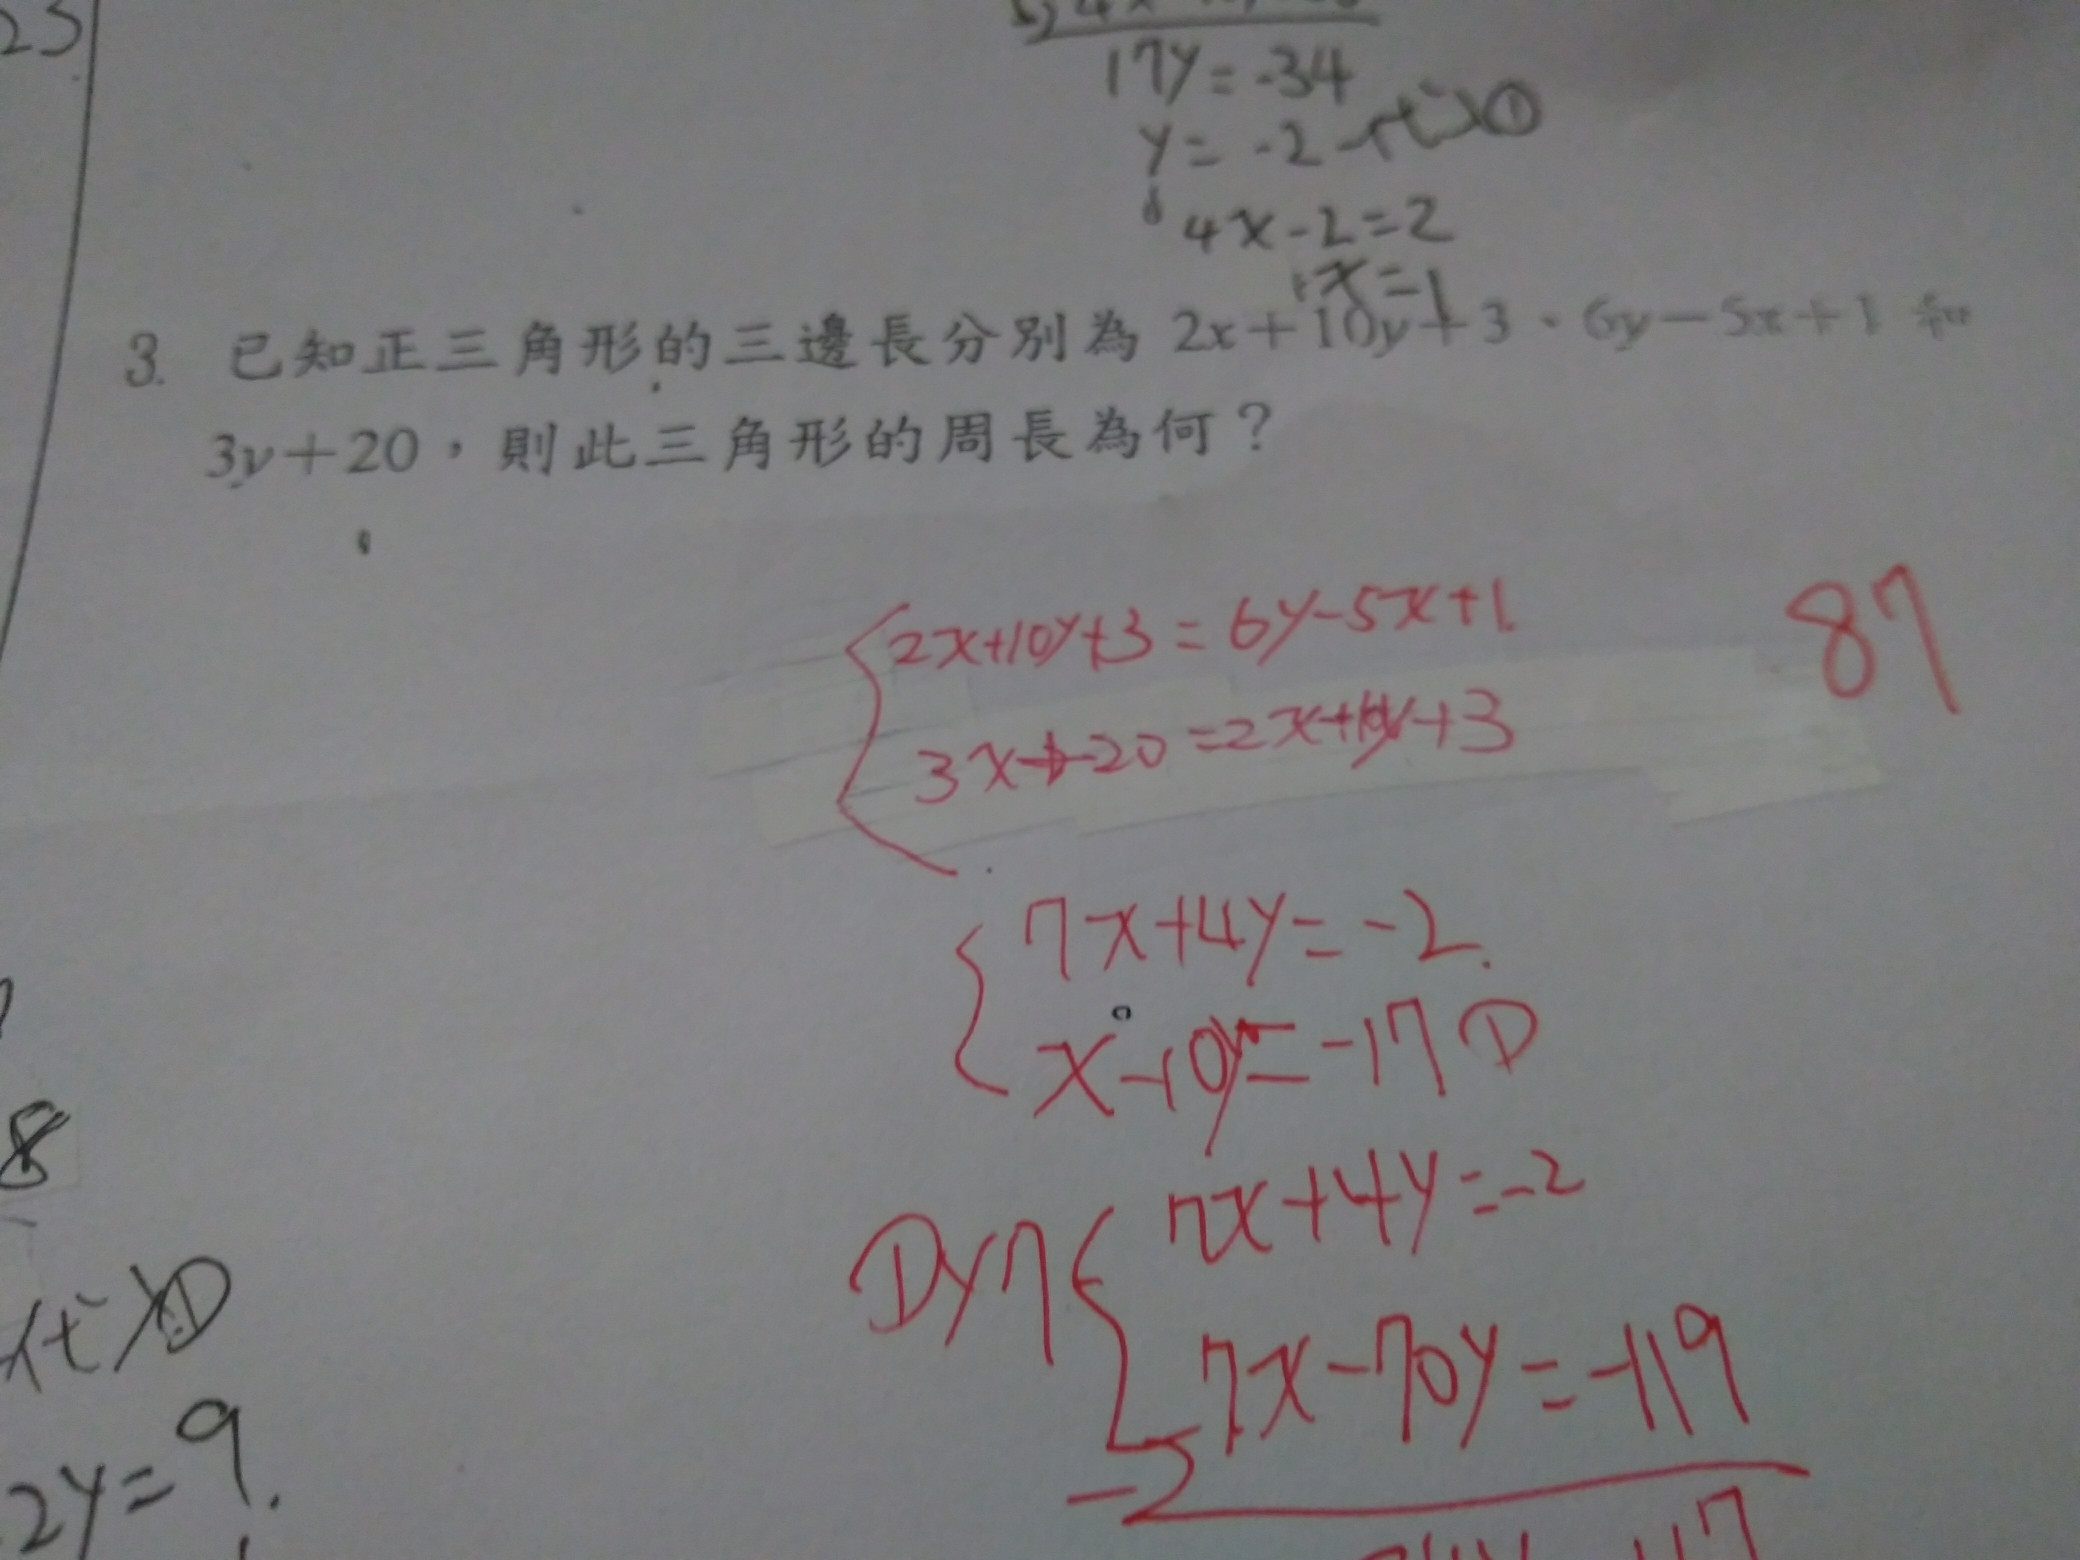 23
17y=-34
y=-2 代入①
4x-2=2
x=1
3. 已知正三角形的三邊長分別為 2x+10y+3、6y-5x+1 和
3y+20，則此三角形的周長為何？
2x+10y+3=6y-5x+1
87
3x+20=2x+10y+3
7x+4y=-2
x-10y=-17 ①
8
①x7 7x+4y=-2
代入①
-) 7x-70y=-119
2y=9.